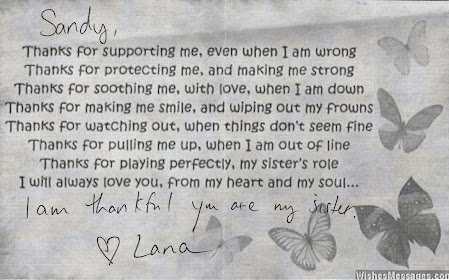 Sandy,
Thanks for supporting me, even when I am wrong
Thanks for protecting me, and making me strong
Thanks for soothing me, with love, when I am down
Thanks for making me smile, and wiping out my frowns
Thanks for watching out, when things don't seem fine
Thanks for pulling me up, when I am out of line
Thanks for playing perfectly, my sister's role
I will always love you, from my heart and my soul...
I am thankful you are my sister.
♡ Lana
WishesMessages.com